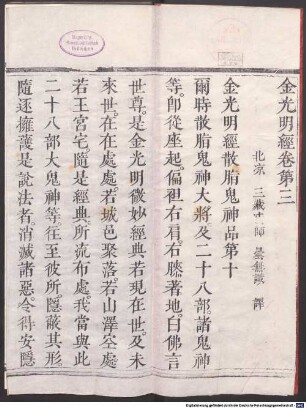 金光明經卷第三
北京 三藏法師 曇無讖 譯
金光明經散脂鬼神品第十
爾時散脂鬼神大將及二十八部諸鬼神
等。即從座起。偏袒右肩。右膝著地。白佛言
世尊。是金光明微妙經典。若現在世。及未
來世。在在處處。若城邑聚落。若山澤空處
若王宮宅。隨是經典。所流布處。我當與此
二十八部大鬼神等。往至彼所。隱蔽其形。
隨逐擁護。是說法者。消滅諸惡。令得安隱